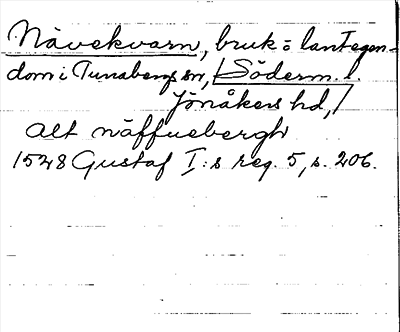 Nävekvarn, bruk o lantegen-
dom i Tunabergs sn, Söderm. l.
Jönåkers hd,
Alt näffuebergh
1528 Gustaf I:s reg. 5, s. 206.